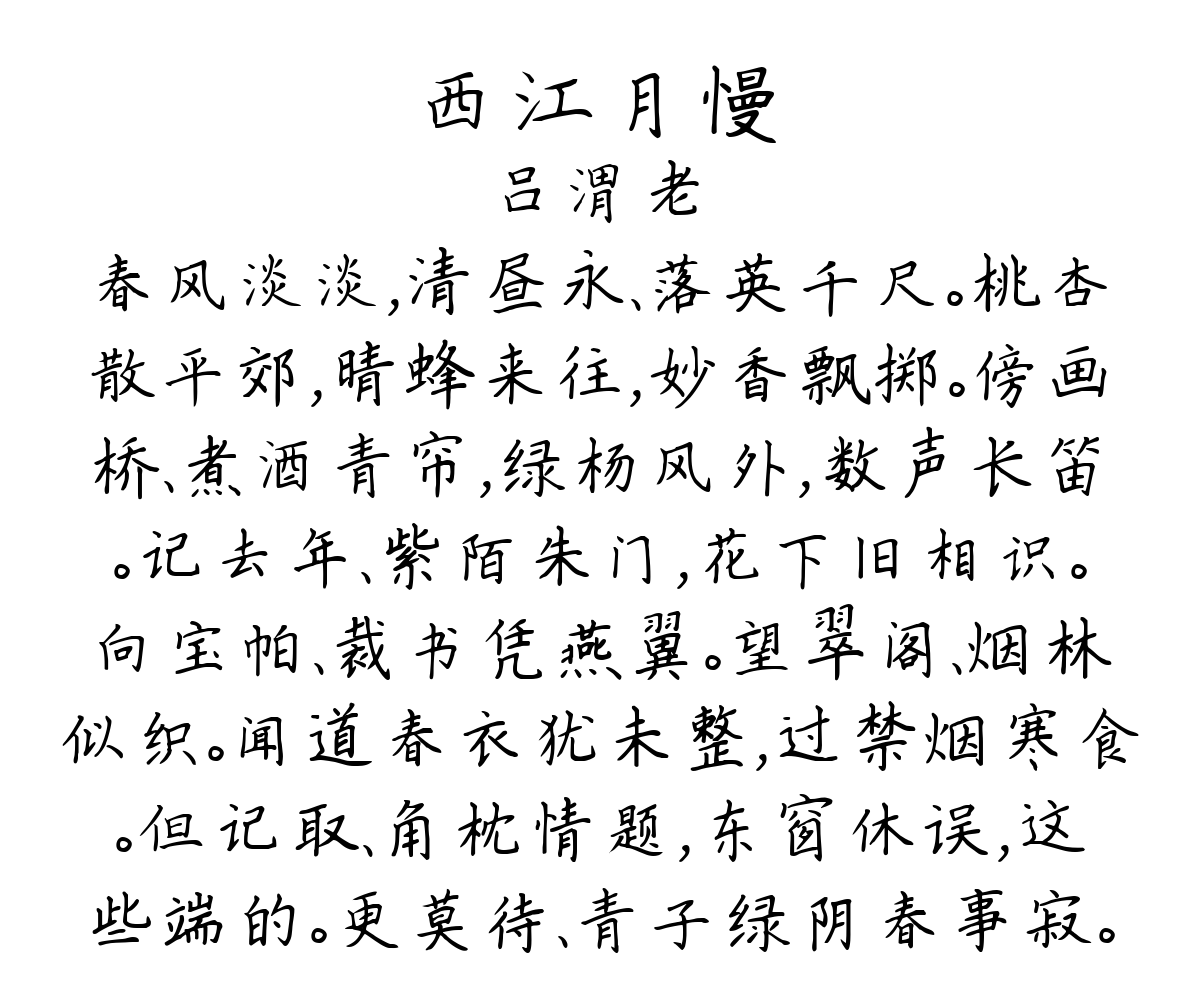 西江月慢
吕渭老
春风淡淡,清昼永、落英千尺。桃杏
散平郊,晴蜂来往,妙香飘掷。傍画
桥、煮酒青帘,绿杨风外,数声长笛
。记去年、紫陌朱门,花下旧相识。
向宝帕、裁书凭燕翼。望翠阁、烟林
似织。闻道春衣犹未整,过禁烟寒食
。但记取、角枕情题,东窗休误,这
些端的。更莫待、青子绿阴春事寂。